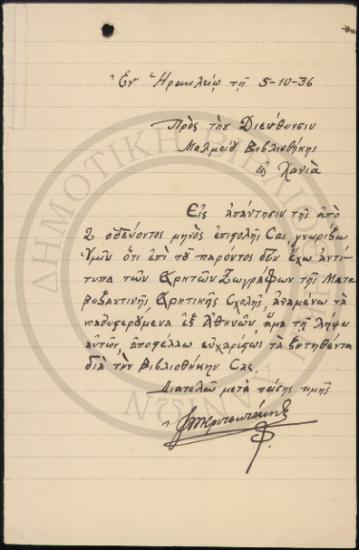 Ἐν Ἡρακλείῳ τῇ 5-10-36
Πρὸς τὴν Διεύθυνσιν
Βιβλιοθήκης
Χανιά
Εἰς ἀπάντησιν τῆς ἀπὸ
2 ὁδεύοντος μηνὸς ἐπιστολῆς Σας γνωρίζω
Ὑμῖν ὅτι ἐπὶ τοῦ παρόντος δὲν ἔχω ἀντί-
τυπα τῶν Κρητῶν Ζωγράφων τῆς Μετα-
βυζαντινῆς Κρητικῆς Σχολῆς, ἀναμένω τὰ
ἐξ Ἀθηνῶν, ἅμα τῇ λήψει
αὐτῶν, ἀποστέλλω εὐχαρίστως τὰ ζητηθέντα
διὰ τὴν Βιβλιοθήκην Σας.
Διατελῶ μετὰ πάσης τιμῆς
ΔΗΜΟΤΙΚΗ ΒΙΒΛΙΟΘΗΚΗ ΧΑΝΙΩΝ